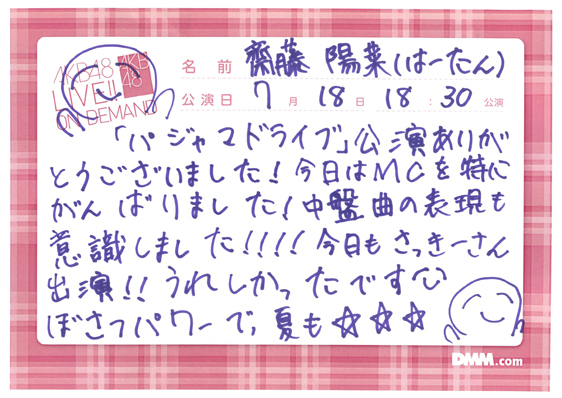 AKB48
LIVE!!
ON DEMAND
AKB
48
名前 齋藤 陽菜(はーたん)
公演日 7月18日 18:30公演
「パジャマドライブ」公演ありが
とうございました!今日はMCを特に
がんばりました!中盤曲の表現も
意識しました!!!!今日もさっきーさん
出演!!うれしかったです
ぼさつパワーで、夏も☆☆☆
DMM.com